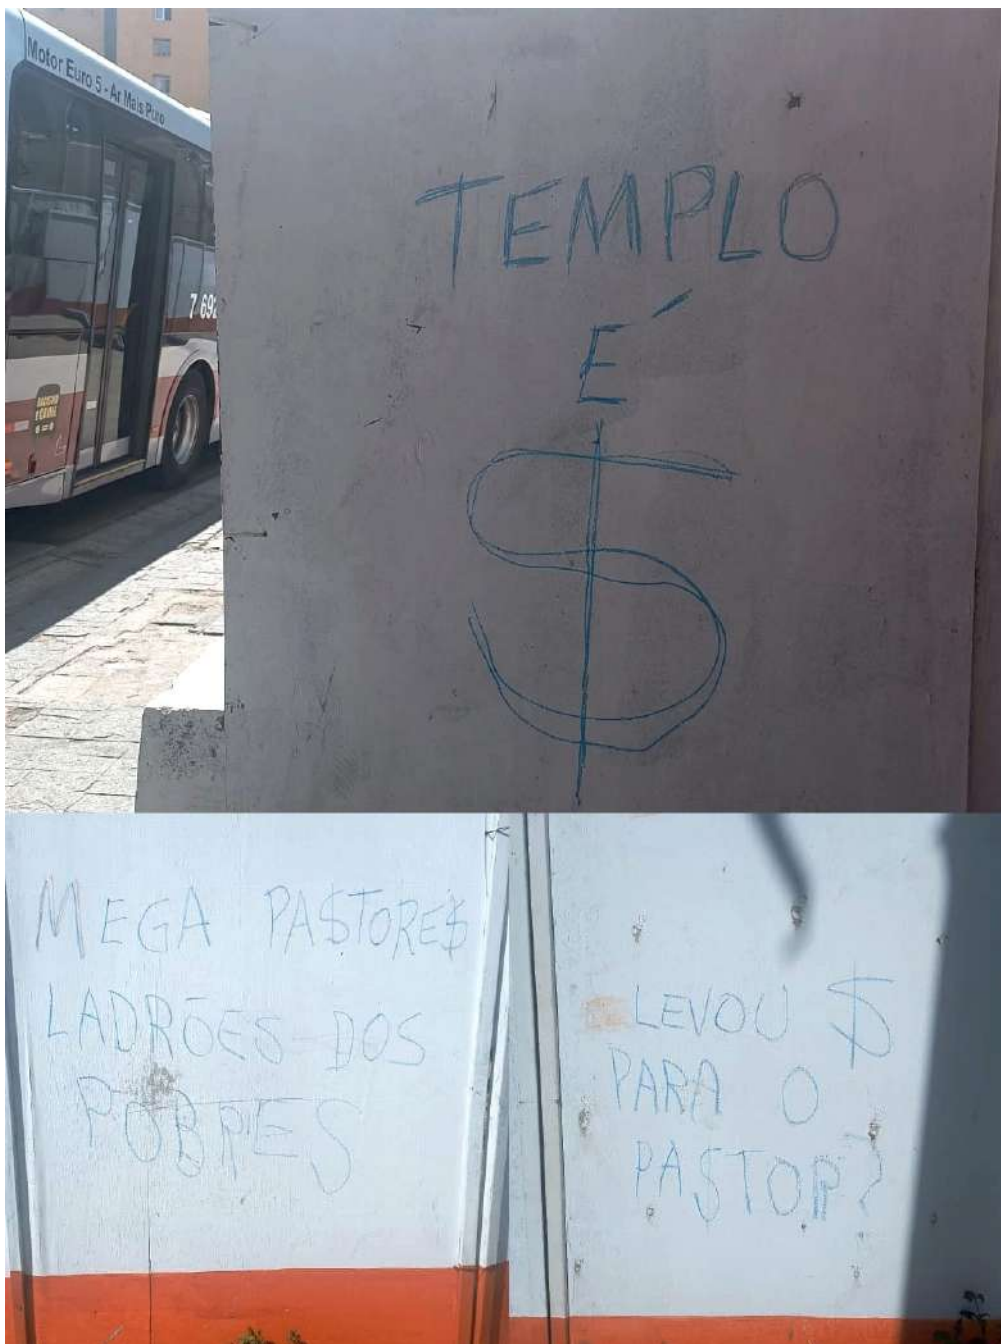 Motor Euro 5 - Ar Mais Puro
7 692
TEMPLO
É
$
MEGA PA$TORE$
LADRÕES DOS
POBRES
LEVOU $
PARA O
PA$TOR?